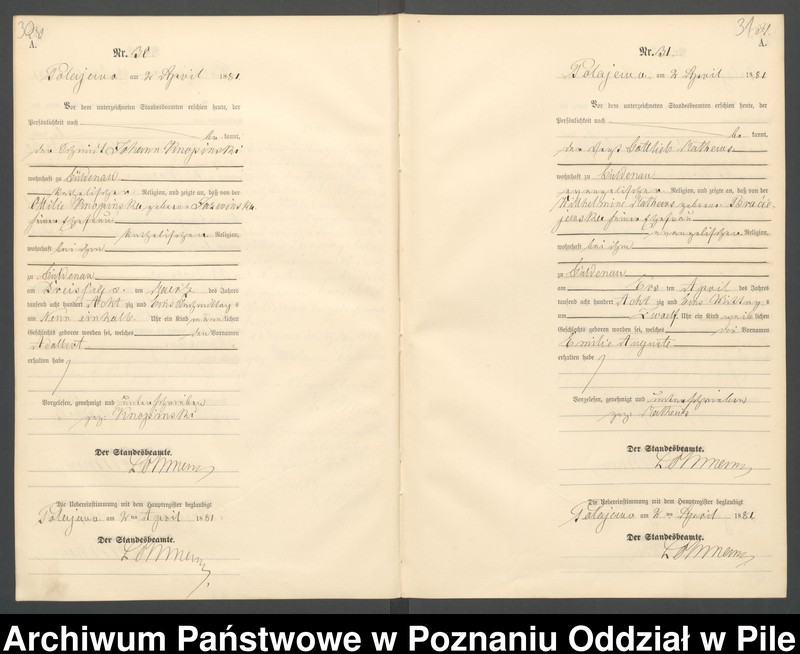 30
A.
Nr. 30
Polajewo am 2 April 1881
Vor dem unterzeichneten Standesbeamten erschien heute, der
Persönlichkeit nach
be kannt,
der Schmidt Johann Knopinski
wohnhaft zu Güldenau
katholischer Religion, und zeigte an, daß von der
Ottilie Knopinska geborne
seiner Ehefrau
katholischer Religion,
wohnhaft bei ihm
zu Güldenau
am Dreißig ten Maerz des Jahres
tausend acht hundert Acht zig und Eins Nachmittag s
um Neun einhalb Uhr ein Kind männ lichen
Geschlechts geboren worden sei, welches den Vornamen
Adalbert
erhalten habe
Vorgelesen, genehmigt und unterschrieben
gez: Knopinski
Der Standesbeamte.
Die Uebereinstimmung mit dem Hauptregister beglaubigt
Polajewo am 2 ten April 1881
Der Standesbeamte.
31
A.
Nr. 31
Polajewo am 2 April 1881
Vor dem unterzeichneten Standesbeamten erschien heute, der
Persönlichkeit nach
be kannt,
der Gottlieb
wohnhaft zu Güldenau
evangelischer Religion, und zeigte an, daß von der
Wilhelmine geborne
seiner Ehefrau
evangelischer Religion,
wohnhaft bei ihm
zu Güldenau
am Ers ten April des Jahres
tausend acht hundert Acht zig und Eins Mittag s
um Zwoelf Uhr ein Kind weib lichen
Geschlechts geboren worden sei, welches die Vornamen
Emilie Auguste
erhalten habe
Vorgelesen, genehmigt und unterschrieben
gez:
Der Standesbeamte.
Die Uebereinstimmung mit dem Hauptregister beglaubigt
Polajewo am 2 ten April 1881
Der Standesbeamte.
Archiwum Państwowe w Poznaniu Oddział w Pile